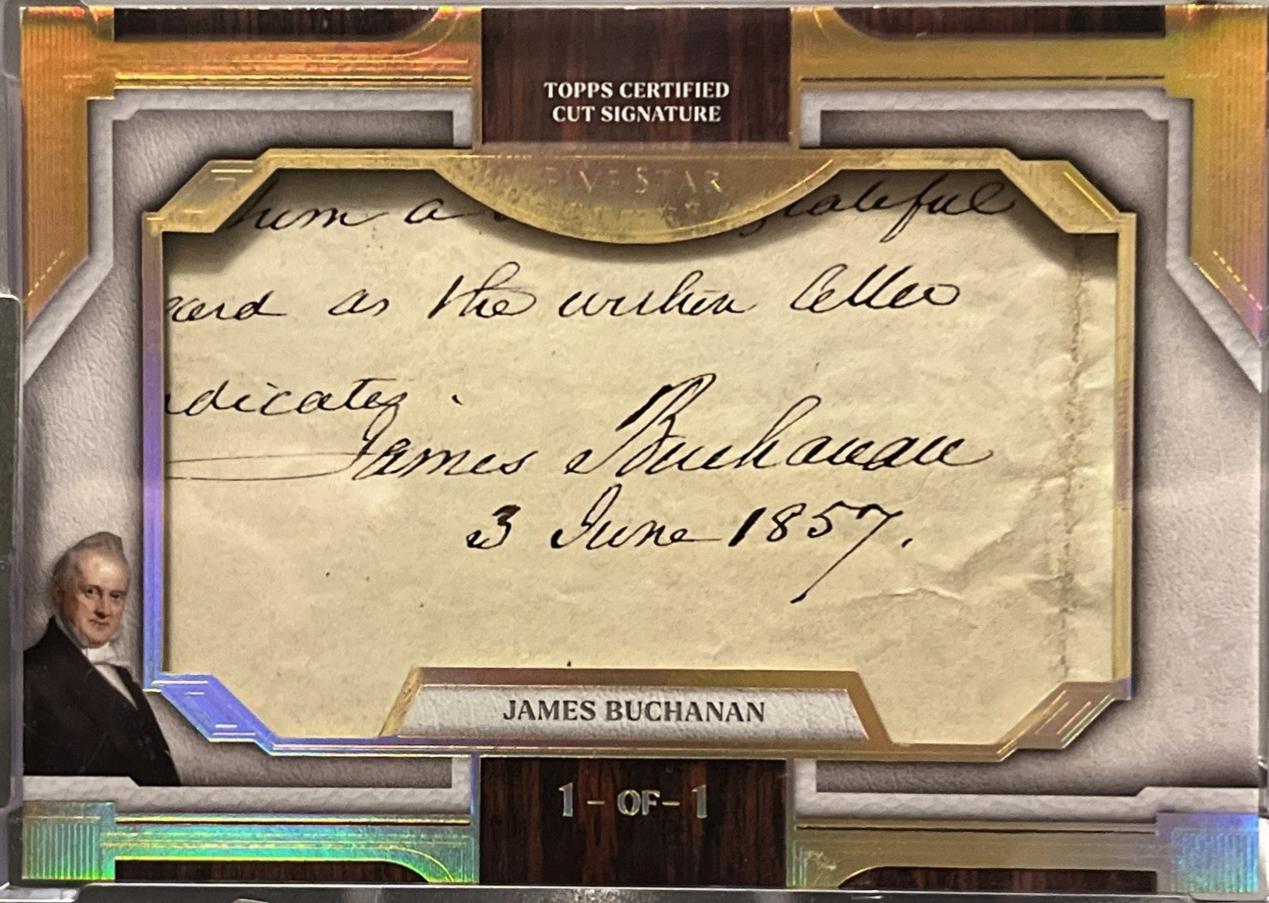 TOPPS CERTIFIED
CUT SIGNATURE
FIVE STAR
him a
as the within letter
dicates.
James Buchanan
3 June 1857.
JAMES BUCHANAN
1-OF-1